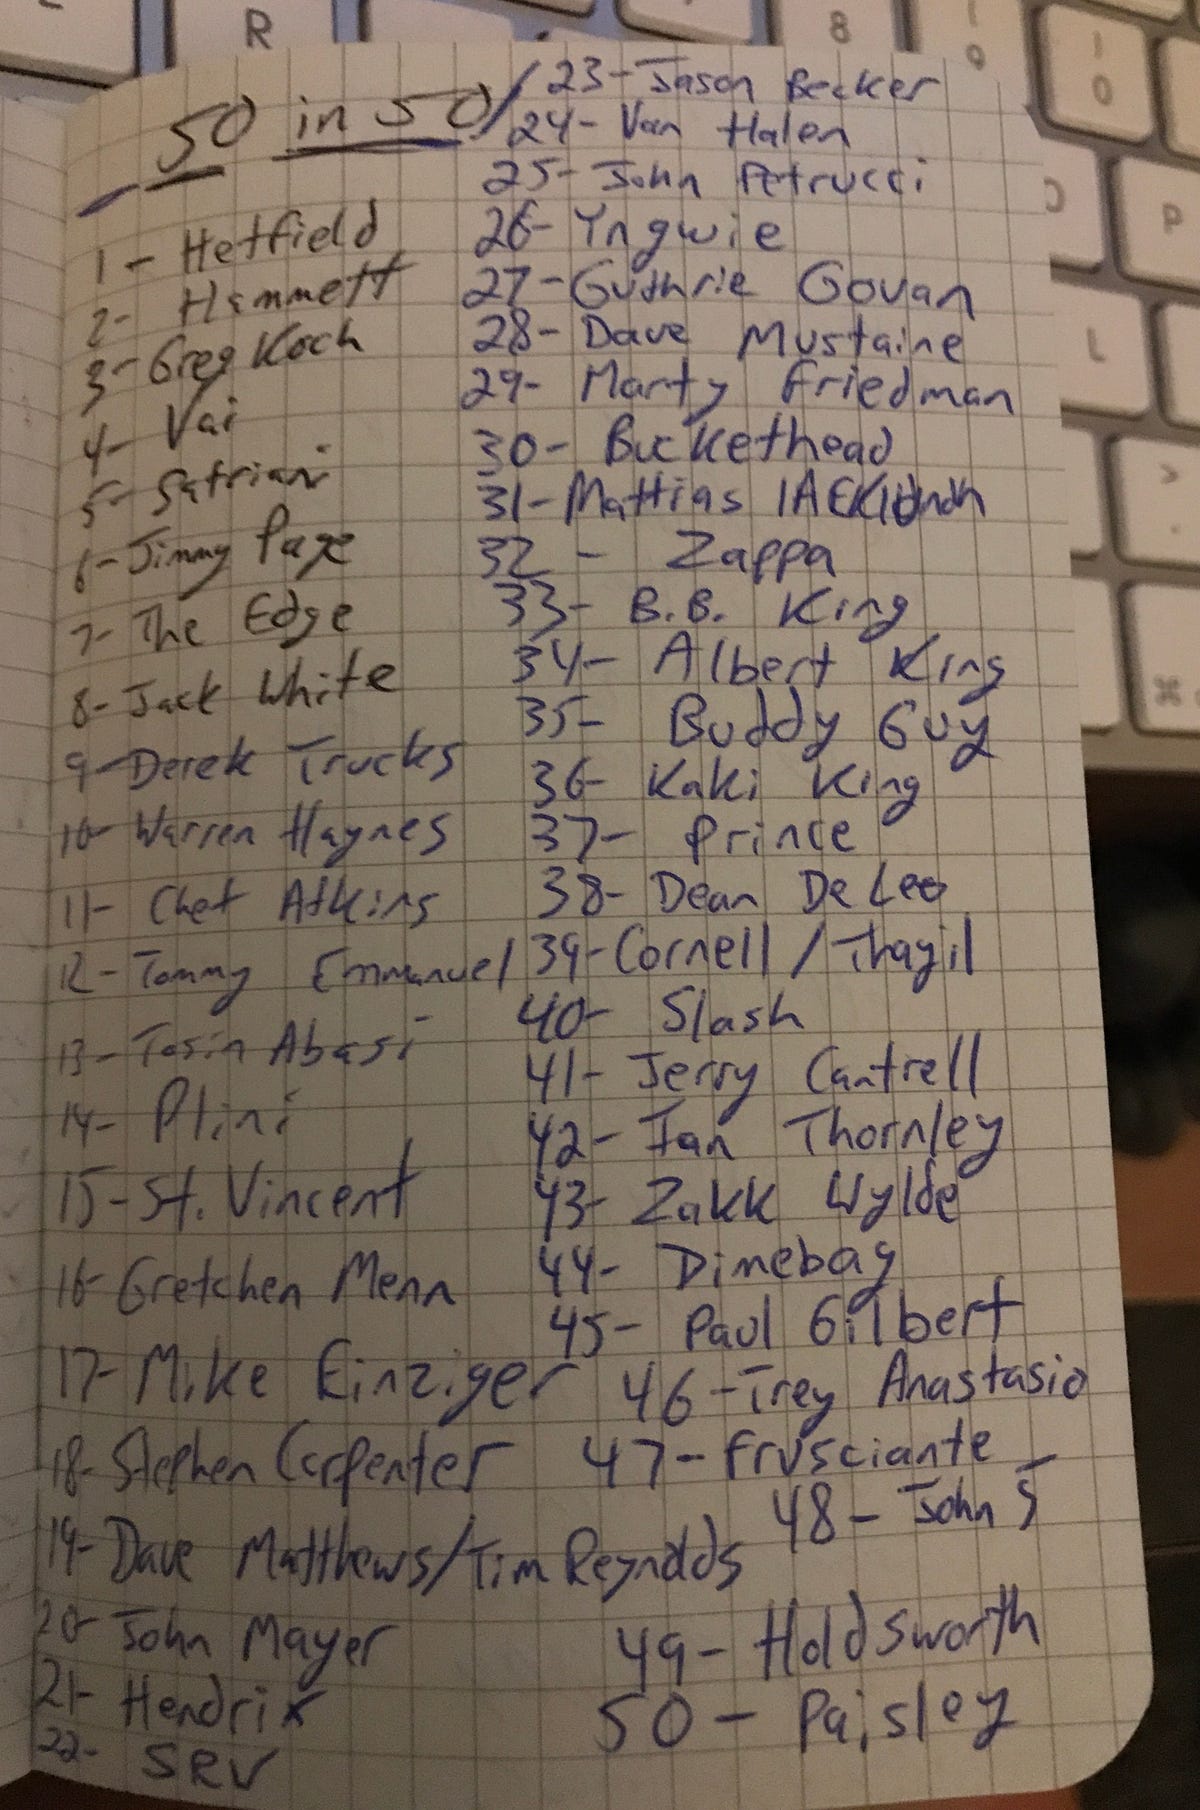 50 in 50
1 - Hetfield
2- Hammett
3- Greg Koch
4- Vai
5- Satriani
6- Jimmy Page
7- The Edge
8- Jack White
9- Derek Trucks
10- Warren Haynes
11- Chet Atkins
12- Tommy Emmanuel
13- Tosin Abasi
14- Plini
15- St. Vincent
16- Gretchen Menn
17- Mike Einziger
18- Stephen Carpenter
19- Dave Matthews/Tim Reynolds
20- John Mayer
21- Hendrix
22- SRV
23- Jason Becker
24- Van Halen
25- John Petrucci
26- Yngwie
27- Guthrie Govan
28- Dave Mustaine
29- Marty Friedman
30- Buckethead
31- Mattias
32 - Zappa
33- B.B. King
34- Albert King
35- Buddy Guy
36- Kaki King
37- Prince
38- Dean DeLeo
39- Cornell / Thayil
40- Slash
41- Jerry Cantrell
42- Ian Thornley
43- Zakk Wylde
44- Dimebag
45- Paul Gilbert
46 - Trey Anastasio
47- Frusciante
48 - John 5
49- Holdsworth
50 - Paisley
R
8
9
0
P
L
>
.
⌘